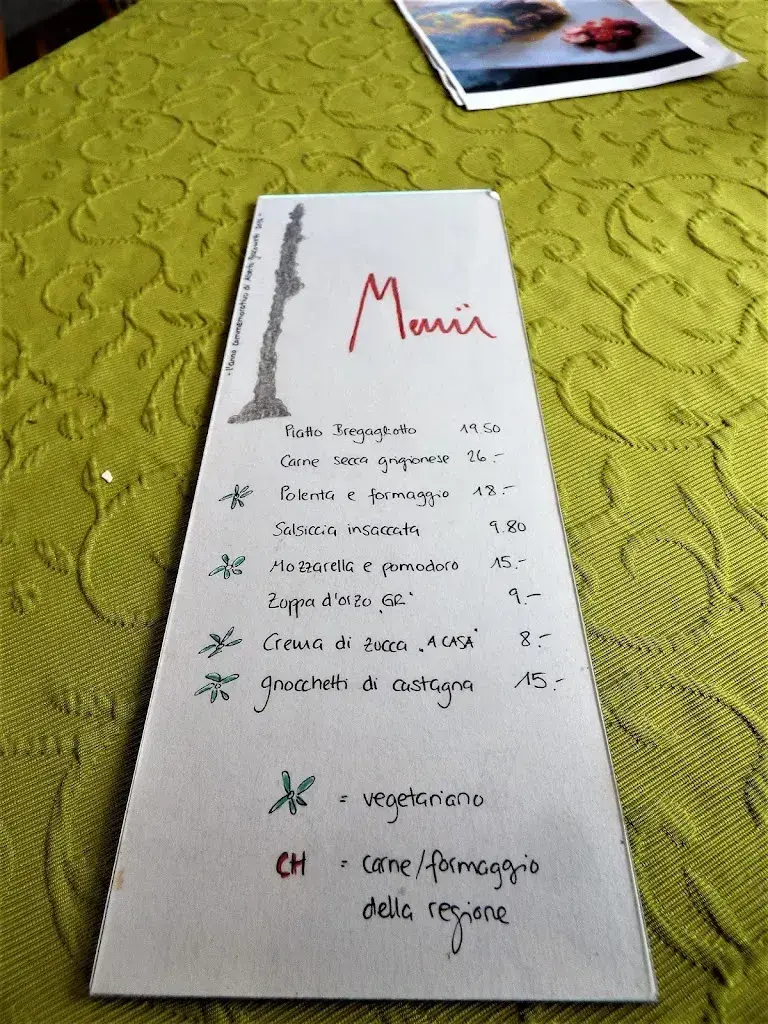 - l'anno commemorativo di Alberto Giacometti 2016 -
Menü
Piatto Bregagliotto 19.50
Carne secca grigionese 26.-
Polenta e formaggio 18.-
Salsiccia insaccata 9.80
Mozzarella e pomodoro 15.-
Zuppa d'orzo „GR" 9.-
Crema di zucca „A CASA" 8.-
gnocchetti di castagna 15.-
= vegetariano
CH = carne/formaggio
della regione